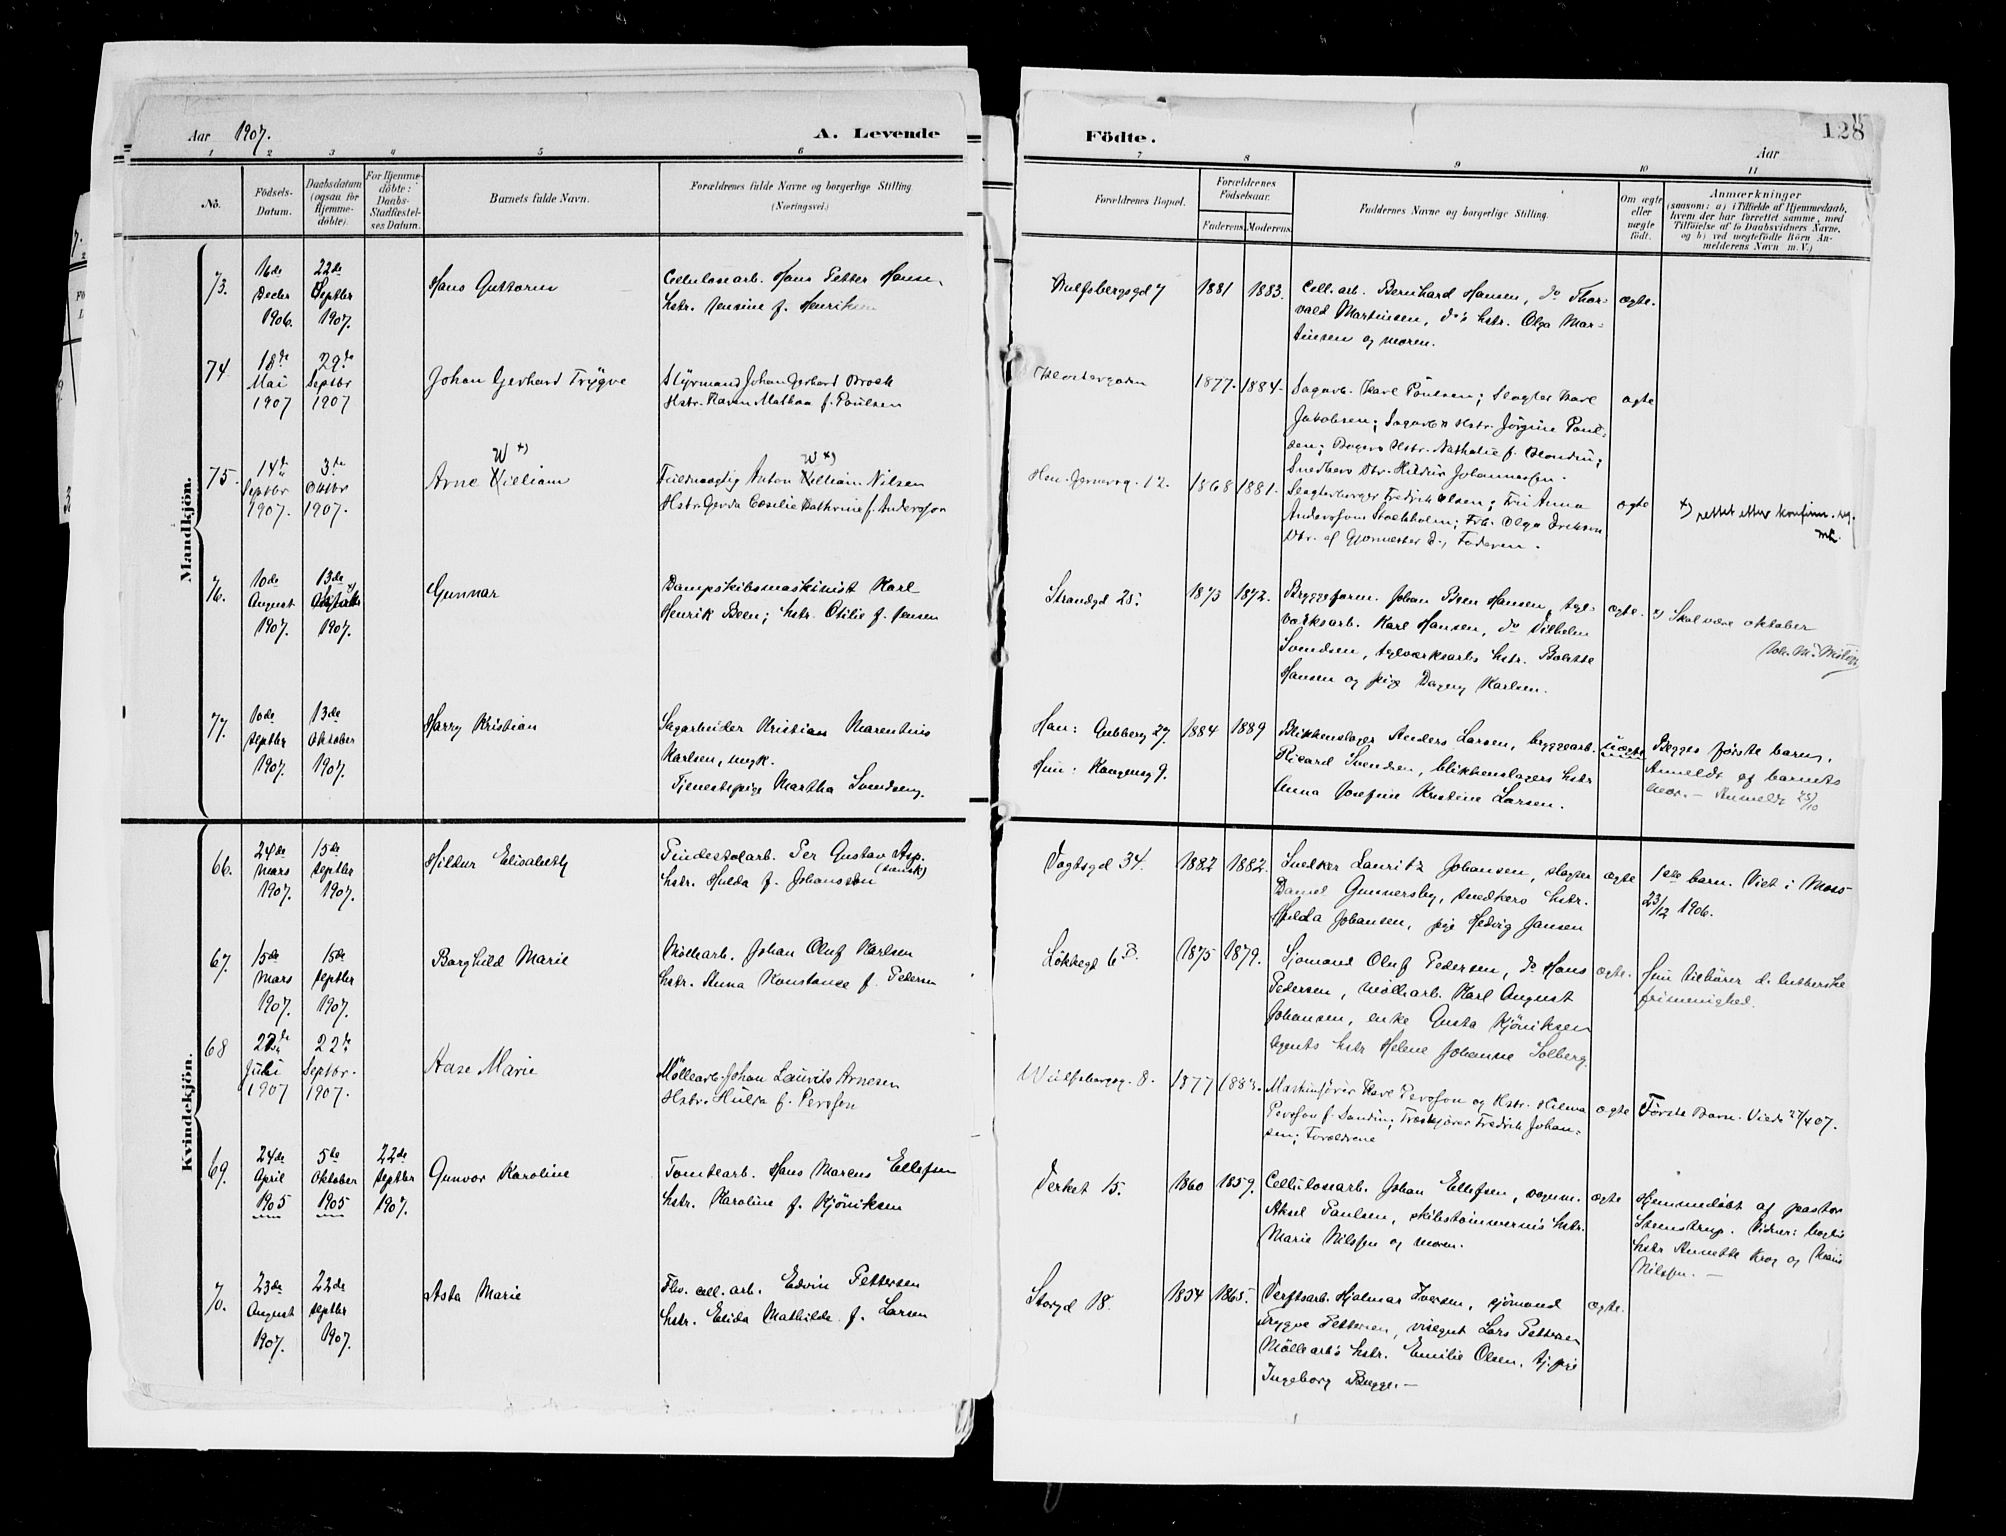 Aar 1907.
A. Levende
Födte.
128
Aar
1 2 3 4 5 6 7 8 9 10 11
No.
Födsels-
Datum.
Daabsdatum
(ogsaa for
Hjemme-
døbte).
For Hjemme-
døbte:
Daabs-
Stadfæstel-
ses Datum.
Barnets fulde Navn.
Forældrenes fulde Navne og borgerlige Stilling.
(Næringsvei.)
Forældrenes Bopæl.
Forældrenes
Födselsaar.
Faderens. Moderens.
Faddernes Navne og borgerlige Stilling.
Om ægte
eller
uægte
født.
Anmærkninger
(saasom: a) i Tilfælde af Hjemmedaab,
hvem der har forrettet samme, med
Tilføielse af to Daabsvidners Navne,
og b) ved uægtefødte Börn An-
melderens Navn m. V.)
Mandkjön.
73.
16de
Decbr
1906.
22de
Septbr
1907.
Hans Guttorm
Cellulosearb. Hans Petter Hansen,
hstr. Jensine f. Henriksen
Wulfsbergsgd 7
1881 1883.
Cell. arb. Bernhard Hansen, do Thor-
vald Martinsen, do's hstr. Olga Mar-
tinsen og moren.
ægte.
74
18de
Mai
1907
29de
Septbr
1907
Johan Gerhard Trygve
Styrmand Johan Gerhard Brock
Hstr. Karen Mathea f. Paulsen
Klostergaden
1877. 1884.
Sagarb. Karl Paulsen; Slagter Karl
Jakobsen; Sagarb.s Hstr. Jörgine Paul-
sen; Bagers Hstr. Nathalie f. Blondin;
Snedkers Dtr. Hildur Johannessen.
ægte
75.
14de
Septbr
1907.
3de
Oktbr
1907.
W x)
Arne Villiam
W x)
Fuldmægtig Anton Villiam Nilsen
Hstr. Gerda Cæsilie Kathrine f. Andersson
Hen. Gernersg. 12.
1868 1881.
Slagterborger Fredrik Olsen; Frü Anna
Andersson Stockholm; Frk. Olga Eriksen
Dtr. af Gjörmester E., Faderen.
ægte
x) rettet etter konfirm. reg.
mk.
76.
10de
August
1907.
13de
1907.
Gunnar
Dampskibsmaskinist Karl
Henrik Been; hstr. Otilie f. Jensen
Strandgd 25.
1873 1872.
Bryggeform. Johan Been Hansen, tegl-
værksarb. Karl Hansen, do Vilhelm
Svendsen, teglværksarbs hstr. Bolette
Hansen og pige Dagny Karlsen.
ægte.
x) Skal være oktober
77.
10de
Septbr
1907.
13de
Oktober
1907.
Harry Kristian
Sagarbeider Kristian Marentius
Karlsen, ungk.
Tjenestepige Martha Svendsen.
Han: Gubberg 27.
Hun: Kongensg 9.
1884 1889
Blikkenslager Anders Larsen, bryggearb.
Rikard Svendsen, blikkenslagers hstr
Anna Josefine Kristine Larsen.
uægte
Begges første barn.
Anmeldt af barnets
mor. — Anmeldt 25/10
Kvindekjön.
66.
24de
Mars
1907.
15de
Septbr
1907.
Hildur Elisabeth
Tindestolarb. Per Gustav Asp.
(svensk)
hstr. Hulda f. Johansson
Vogtsgd 34.
1882 1882.
Snedker Lauritz Johansen, slagter
Daniel Gunnersby, snedkers hstr.
Hulda Johansen, pige Hedvig Jansen
ægte
1ste barn. Viet i Moss
23/12 1906.
67.
15de
Mars
1907.
15de
Septbr
1907.
Borghild Marie
Møllearb. Johan Oluf Karlsen
hstr. Anna Konstance f. Pedersen
Løkkegd 6 B.
1875 1879.
Sjømand Oluf Pedersen, do Hans
Pedersen, møllearb. Karl August
Johansen, enke Gusta Kjöniksen
agents hstr Helene Johanne Solberg.
ægte.
Hun tilhører d. lutherske
frimenighed.
68
22de
Juli
1907
22de
Septbr.
1907.
Aase Marie
Möllearb. Johan Laurits Arnesen
Hstr. Hulda f. Persson
Wulfsbergsg. 8.
1877 1883.
Maskinfører Karl Persson og Hstr. Hilma
Persson f. Sandin; Træskjører Fredrik Johan-
sen; Forældrene
ægte
Første Barn. Viede 27/4 07.
69.
24de
April
1905
5te
Oktober
1905
22de
Septbr
1907.
Gunvor Karoline
Tomtearb. Hans Marens Ellefsen
hstr. Karoline f. Kjöniksen
Verket 15.
1860 1859.
Cellulosearb. Johan Ellefsen, vognm.
Aksel Paulsen, skibstømmerm.s hstr.
Marie Nilssen og moren.
ægte
Hjemmedøbt af pastor
Steenstrup. Vidner:
hstr Annette Krog og
Nilssen. —
70.
23de
August
1907.
22de
Septbr
1907.
Asta Marie
Fhv. cell. arb. Edvin Pettersen
hstr. Elida Mathilde f. Larsen
Storgd 18.
1854 1865.
Verftsarb. Hjalmar Iversen, sjömand
Trygve Pettersen, visergut Lars Pettersen
Möllearb's hstr. Emilie Olsen, tj. pige
Ingeborg Bugge. —
ægte.